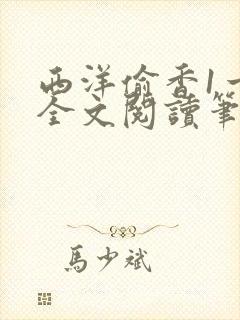 西洋偷香1一
全文閱讀筆
馬少斌